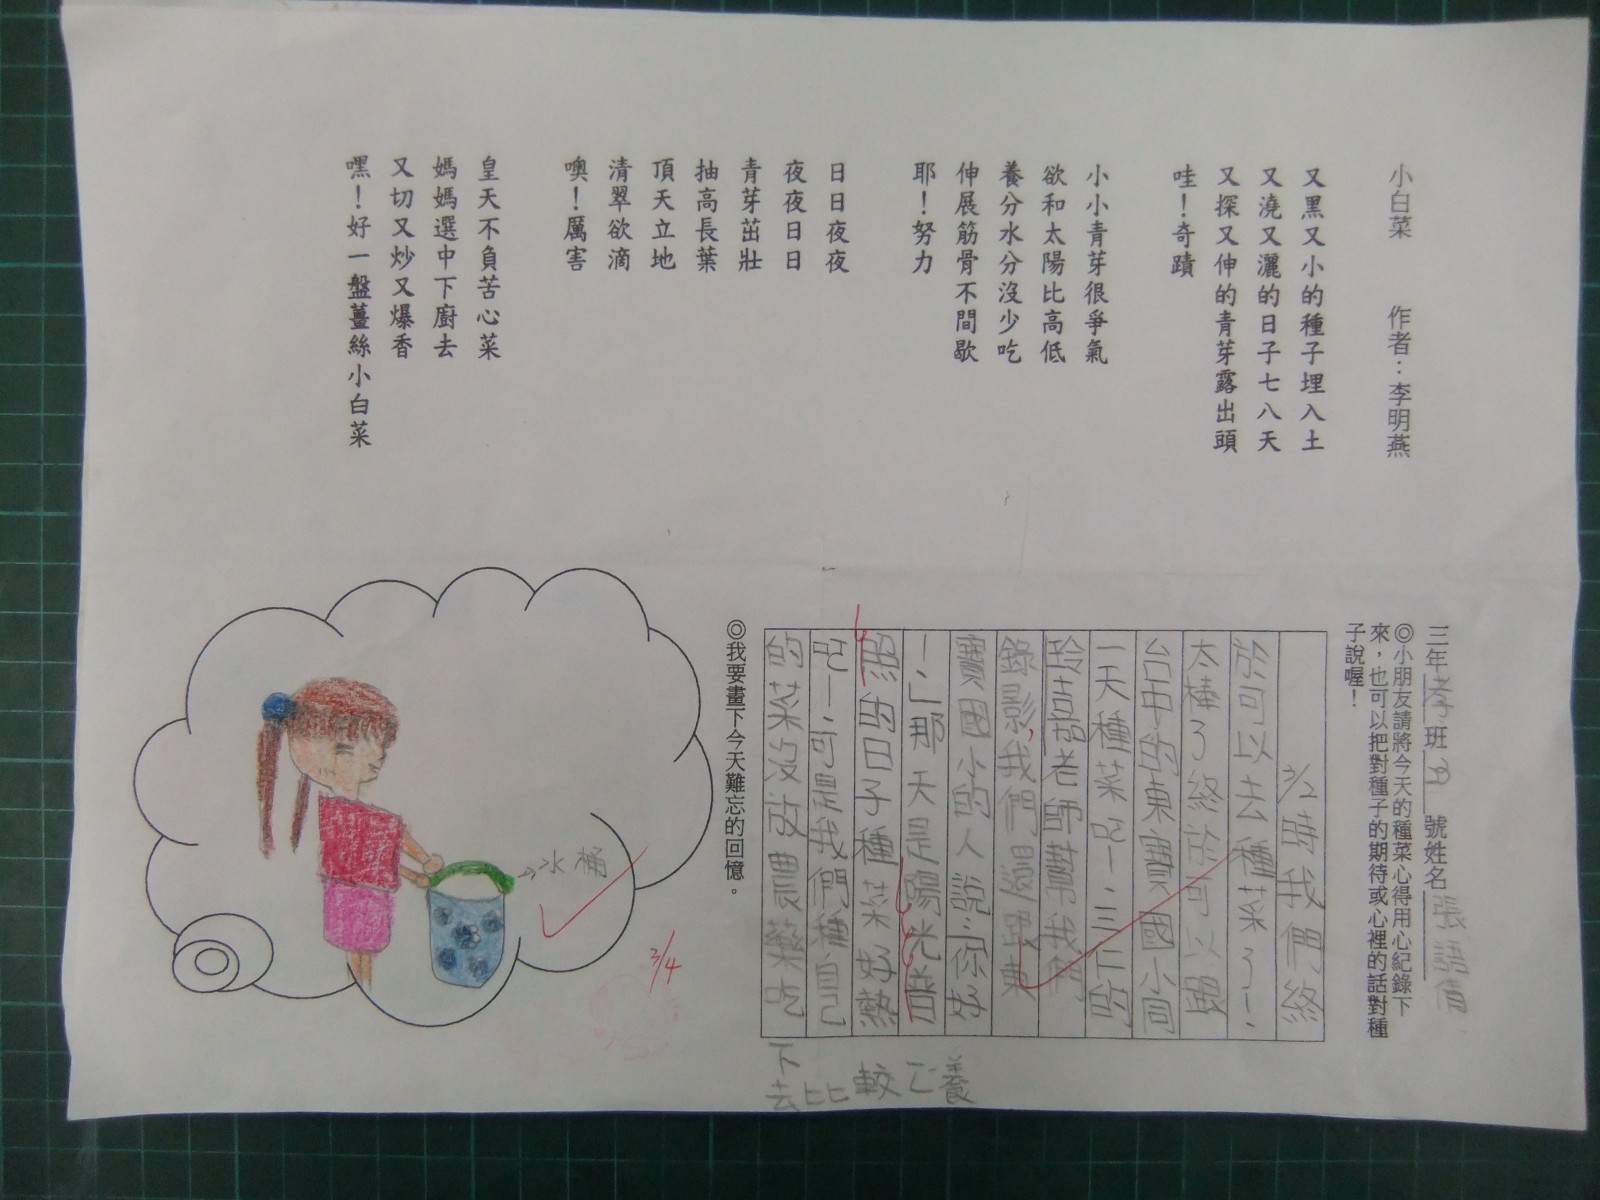 小白菜　作者：李明燕
又黑又小的種子埋入土
又澆又灑的日子七八天
又探又伸的青芽露出頭
哇！奇蹟
小小青芽很爭氣
欲和太陽比高低
養分水分沒少吃
伸展筋骨不間歇
耶！努力
日日夜夜
夜夜日日
青芽茁壯
抽高長葉
頂天立地
清翠欲滴
噢！厲害
皇天不負苦心菜
媽媽選中下廚去
又切又炒又爆香
嘿！好一盤薑絲小白菜
三年孝班 號姓名張語倩
◎小朋友請將今天的種菜心得用心紀錄下
來，也可以把對種子的期待或心裡的話對種
子說喔！
我們終
於可以去種菜了！
太棒了終於可以跟
台中的東寶國小同
一天種菜吔！
老師幫我們
錄影，我們還跟東
寶國小的人說：「你好
！」那天是陽光普
照的日子種菜好熱
吔！可是我們種自己
的菜沒放農藥吃
下去比較 養
◎我要畫下今天難忘的回憶。
水桶
3/4